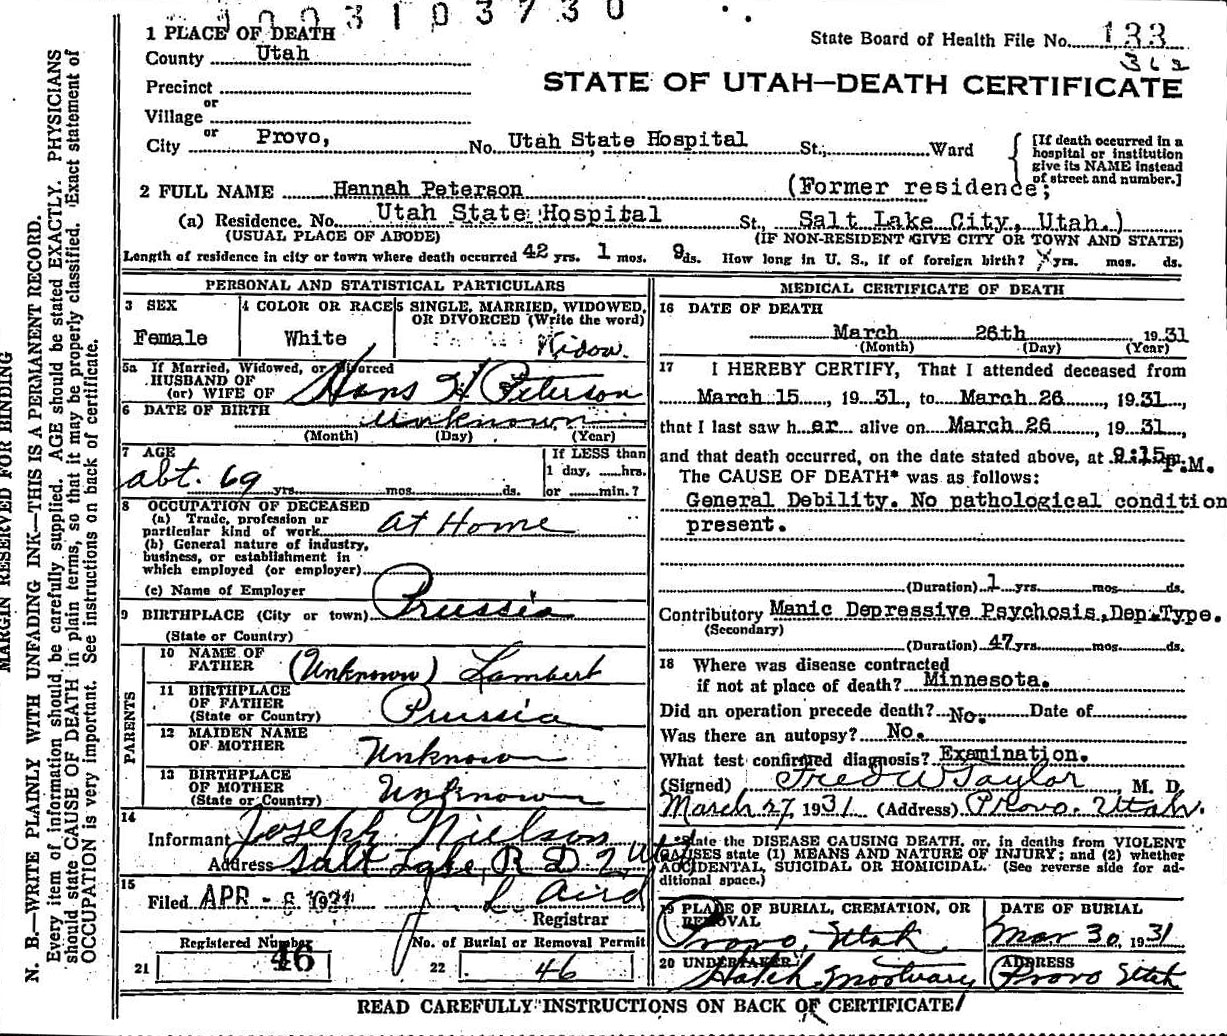 1003103730
1 PLACE OF DEATH
County Utah
State Board of Health File No. 133
362
STATE OF UTAH—DEATH CERTIFICATE
Precinct
or
Village
or
City Provo, No. Utah State Hospital St., Ward
[If death occurred in a
hospital or institution
give its NAME instead
of street and number.]
2 FULL NAME Hannah Peterson (Former residence;
(a) Residence. No. Utah State Hospital St., Salt Lake City, Utah.)
(USUAL PLACE OF ABODE) (IF NON-RESIDENT GIVE CITY OR TOWN AND STATE)
Length of residence in city or town where death occurred 42 yrs. 1 mos. 9 ds. How long in U. S., if of foreign birth? yrs. mos. ds.
PERSONAL AND STATISTICAL PARTICULARS
3 SEX
Female
4 COLOR OR RACE
White
5 SINGLE, MARRIED, WIDOWED,
OR DIVORCED (Write the word)
Widow.
5a If Married, Widowed, or Divorced
HUSBAND OF
(or) WIFE OF Hans H Peterson
6 DATE OF BIRTH unknown
(Month) (Day) (Year)
7 AGE
abt. 69 yrs. mos. ds.
If LESS than
1 day, hrs.
or min.?
8 OCCUPATION OF DECEASED
(a) Trade, profession or
particular kind of work at Home
(b) General nature of industry,
business, or establishment in
which employed (or employer)
(c) Name of Employer
9 BIRTHPLACE (City or town) Prussia
(State or Country)
PARENTS
10 NAME OF
FATHER (Unknown) Lambert
11 BIRTHPLACE
OF FATHER
(State or Country) Prussia
12 MAIDEN NAME
OF MOTHER Unknown
13 BIRTHPLACE
OF MOTHER
(State or Country) Unknown
14
Informant Joseph Nielson
Address Salt Lake, R D 2 Utah
15
Filed APR - 8 1931 J. L. Aird
Registrar
Registered Number
21 46
No. of Burial or Removal Permit
22 46
MEDICAL CERTIFICATE OF DEATH
16 DATE OF DEATH
March 26th 1931
(Month) (Day) (Year)
17 I HEREBY CERTIFY, That I attended deceased from
March 15, 1931, to March 26, 1931,
that I last saw her alive on March 26, 1931,
and that death occurred, on the date stated above, at 9:15m. P.M.
The CAUSE OF DEATH* was as follows:
General Debility. No pathological condition
present.
(Duration) 1 yrs. mos. ds.
Contributory Manic Depressive Psychosis, Dep.Type.
(Secondary)
(Duration) 47 yrs. mos. ds.
18 Where was disease contracted
if not at place of death? Minnesota.
Did an operation precede death? No. Date of
Was there an autopsy? No.
What test confirmed diagnosis? Examination.
(Signed) Fred W Taylor, M. D.
March 27, 1931 (Address) Provo, Utah.
*State the DISEASE CAUSING DEATH, or, in deaths from VIOLENT
CAUSES state (1) MEANS AND NATURE OF INJURY; and (2) whether
ACCIDENTAL, SUICIDAL OR HOMICIDAL. (See reverse side for ad-
ditional space.)
19 PLACE OF BURIAL, CREMATION, OR
REMOVAL
Provo, Utah.
DATE OF BURIAL
Mar 30, 1931
20 UNDERTAKER
Hatch Mortuary
ADDRESS
Provo Utah
READ CAREFULLY INSTRUCTIONS ON BACK OF CERTIFICATE
MARGIN RESERVED FOR BINDING
N. B.—WRITE PLAINLY WITH UNFADING INK—THIS IS A PERMANENT RECORD.
Every item of information should be carefully supplied. AGE should be stated EXACTLY. PHYSICIANS
should state CAUSE OF DEATH in plain terms, so that it may be properly classified. Exact statement of
OCCUPATION is very important. See instructions on back of certificate.